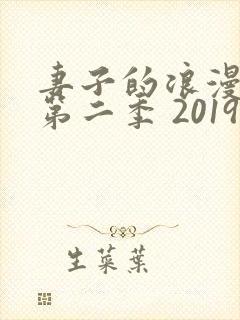 妻子的浪漫
第二季 2019
生菜葉